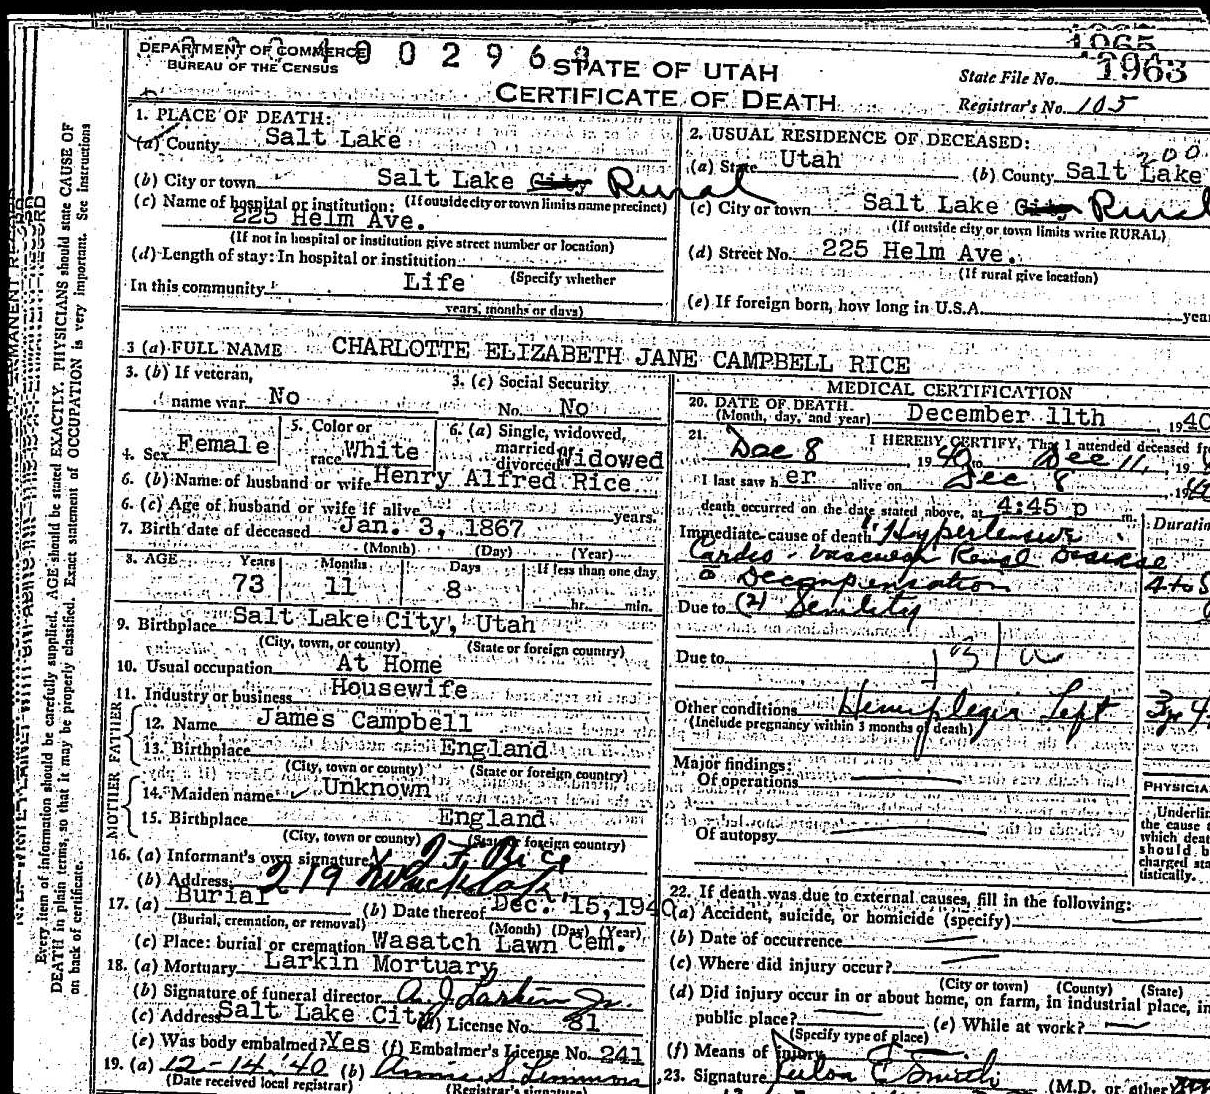 DEPARTMENT OF COMMERCE
BUREAU OF THE CENSUS
STATE OF UTAH
CERTIFICATE OF DEATH
State File No. 1963
Registrar's No. 105
1. PLACE OF DEATH:
(a) County Salt Lake
(b) City or town Salt Lake City Rural
(c) Name of hospital or institution: (If outside city or town limits name precinct)
225 Helm Ave.
(If not in hospital or institution give street number or location)
(d) Length of stay: In hospital or institution
(Specify whether
In this community Life
years, months or days)
2. USUAL RESIDENCE OF DECEASED:
(a) State Utah (b) County Salt Lake
(c) City or town Salt Lake City Rural
(If outside city or town limits write RURAL)
(d) Street No. 225 Helm Ave.
(If rural give location)
(e) If foreign born, how long in U.S.A. year
3 (a) FULL NAME CHARLOTTE ELIZABETH JANE CAMPBELL RICE
3. (b) If veteran,
name war No
3. (c) Social Security
No. No
4. Sex Female
5. Color or
race White
6. (a) Single, widowed,
married,
divorced Widowed
6. (b) Name of husband or wife Henry Alfred Rice
6. (c) Age of husband or wife if alive years.
7. Birth date of deceased Jan. 3, 1867
(Month) (Day) (Year)
8. AGE Years Months Days If less than one day
73 11 8 hr. min.
9. Birthplace Salt Lake City, Utah
(City, town, or county) (State or foreign country)
10. Usual occupation At Home
11. Industry or business Housewife
FATHER
12. Name James Campbell
13. Birthplace England
(City, town or county) (State or foreign country)
MOTHER
14. Maiden name Unknown
15. Birthplace England
(City, town or county) (State or foreign country)
16. (a) Informant's own signature Rice
(b) Address 219
17. (a) Burial (b) Date thereof Dec. 15, 1940
(Burial, cremation, or removal) (Month) (Day) (Year)
(c) Place: burial or cremation Wasatch Lawn Cem.
18. (a) Mortuary Larkin Mortuary
(b) Signature of funeral director A. J. Larkin Jr.
(c) Address Salt Lake City (d) License No. 81
(e) Was body embalmed? Yes (f) Embalmer's License No. 241
19. (a) 12-14-'40 (b)
(Date received local registrar) (Registrar's signature)
MEDICAL CERTIFICATION
20. DATE OF DEATH
(Month, day, and year) December 11th 1940
21. I HEREBY CERTIFY, That I attended deceased fr
Dec 8, 1940 to Dec 11, 19
I last saw her alive on Dec 8, 19
death occurred on the date stated above, at 4:45 p m.
Immediate cause of death 1. Hypertensive
Cardio-vascular Renal Disease
Decompensation
Due to (2) Senility
Due to
Duration
4 to 5
Other conditions Hemiplegia Left
(Include pregnancy within 3 months of death)
Major findings:
Of operations
Of autopsy
PHYSICIA
Underlin
the cause
which deat
should b
charged sta
tistically.
22. If death was due to external causes, fill in the following:
(a) Accident, suicide, or homicide (specify)
(b) Date of occurrence
(c) Where did injury occur?
(City or town) (County) (State)
(d) Did injury occur in or about home, on farm, in industrial place, in
public place? (e) While at work?
(Specify type of place)
(f) Means of injury
23. Signature E Smith (M.D. or other)
Every item of information should be carefully supplied. AGE should be stated EXACTLY. PHYSICIANS should state CAUSE OF
DEATH in plain terms, so that it may be properly classified. Exact statement of OCCUPATION is very important. See Instructions
on back of certificate.